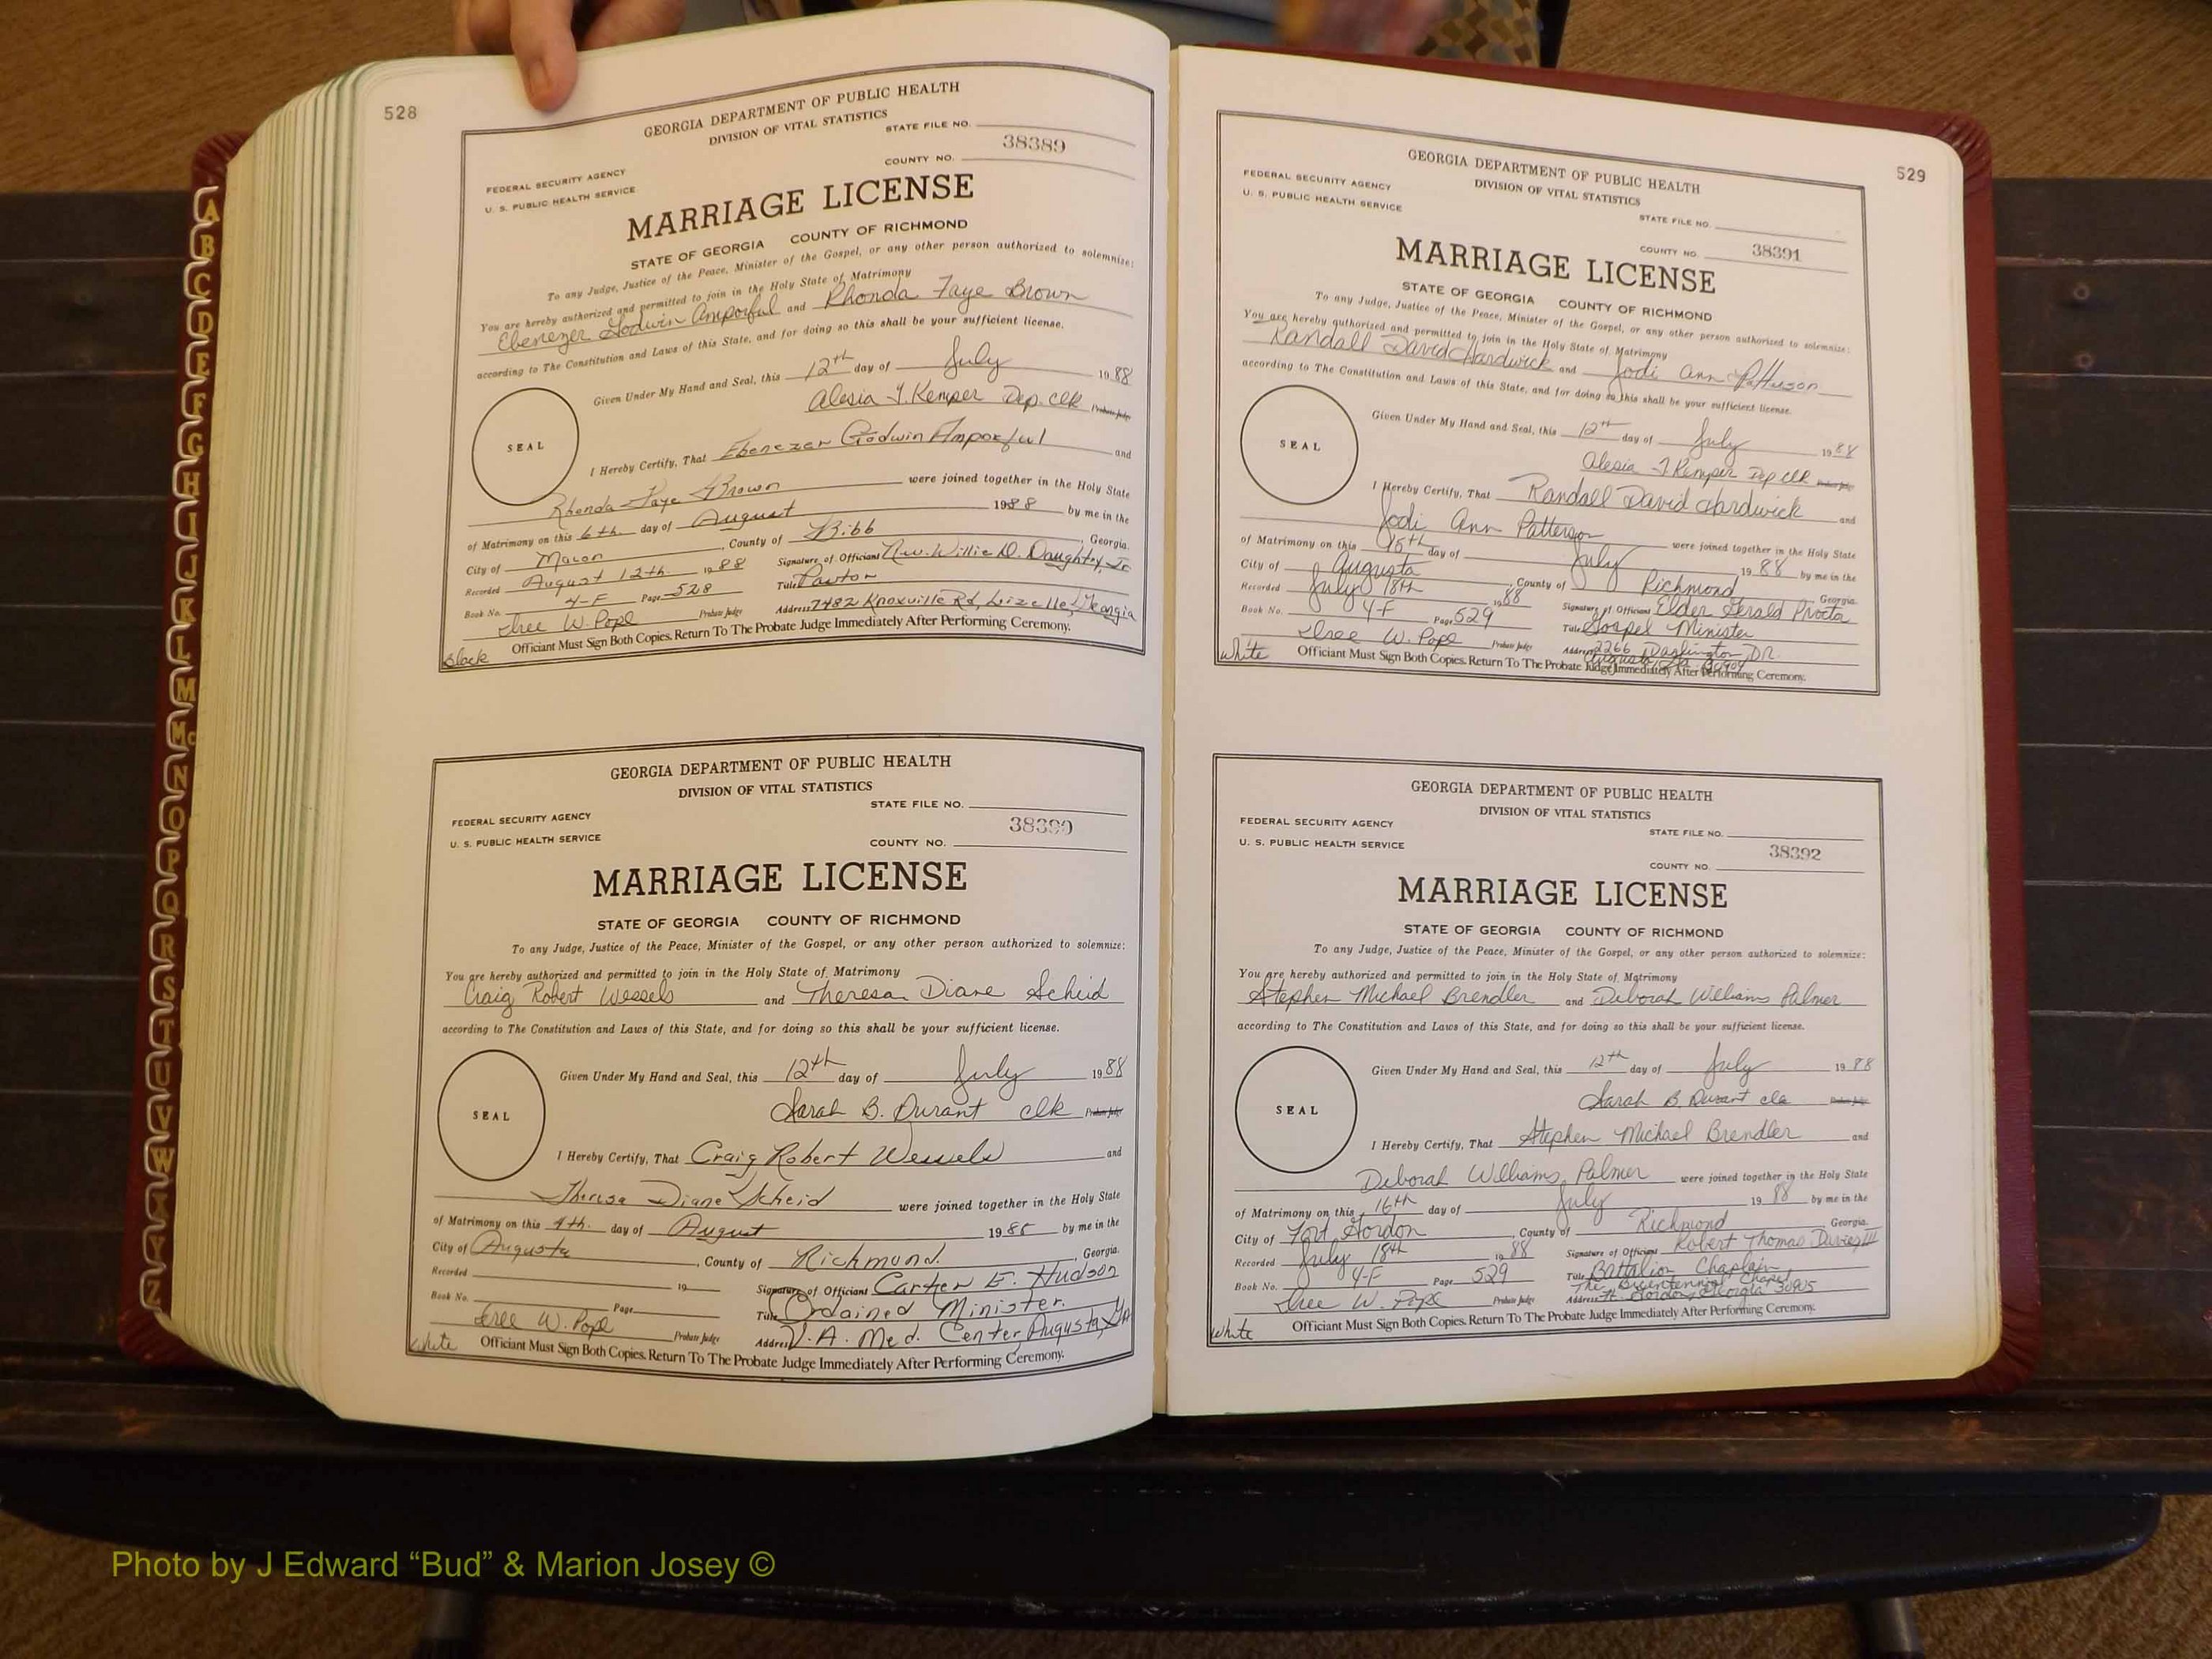 528
GEORGIA DEPARTMENT OF PUBLIC HEALTH
DIVISION OF VITAL STATISTICS
STATE FILE NO.
38389
COUNTY NO.
FEDERAL SECURITY AGENCY
U. S. PUBLIC HEALTH SERVICE
MARRIAGE LICENSE
STATE OF GEORGIA COUNTY OF RICHMOND
To any Judge, Justice of the Peace, Minister of the Gospel, or any other person authorized to solemnize:
You are hereby authorized and permitted to join in the Holy State of Matrimony
Ebenezer Godwin Amporful and Rhonda Faye Brown
according to The Constitution and Laws of this State, and for doing so this shall be your sufficient license.
Given Under My Hand and Seal, this 12th day of July 1988
Alesia Y. Kemper Dep. Clk Probate Judge
SEAL
I Hereby Certify, That Ebenezer Godwin Amporful and
Rhonda Faye Brown were joined together in the Holy State
of Matrimony on this 6th. day of August 1988 by me in the
City of Macon, County of Bibb, Georgia.
Recorded August 12th. 1988 Signature of Officiant Rev. Willie D. Daughtry, Jr.
Book No. 4-F Page 528 Title Pastor
W. Pope Probate Judge Address 7482 Knoxville Rd, Lizella, Georgia
Black Officiant Must Sign Both Copies. Return To The Probate Judge Immediately After Performing Ceremony.
GEORGIA DEPARTMENT OF PUBLIC HEALTH
DIVISION OF VITAL STATISTICS
STATE FILE NO.
38390
FEDERAL SECURITY AGENCY
U. S. PUBLIC HEALTH SERVICE
COUNTY NO.
MARRIAGE LICENSE
STATE OF GEORGIA COUNTY OF RICHMOND
To any Judge, Justice of the Peace, Minister of the Gospel, or any other person authorized to solemnize:
You are hereby authorized and permitted to join in the Holy State of Matrimony
Craig Robert Wessels and Theresa Diane Scheid
according to The Constitution and Laws of this State, and for doing so this shall be your sufficient license.
Given Under My Hand and Seal, this 12th day of July 1988
Sarah B. Durant clk Probate Judge
SEAL
I Hereby Certify, That Craig Robert Wessels and
Theresa Diane Scheid were joined together in the Holy State
of Matrimony on this day of August 198 by me in the
City of Augusta, County of Richmond. Georgia.
Recorded 19 Signature of Officiant Carther E. Hudson
Book No. Page Title Ordained Minister.
W. Pope Probate Judge Address V. A. Med. Center, Augusta, GA
White Officiant Must Sign Both Copies. Return To The Probate Judge Immediately After Performing Ceremony.
529
GEORGIA DEPARTMENT OF PUBLIC HEALTH
DIVISION OF VITAL STATISTICS
FEDERAL SECURITY AGENCY
U. S. PUBLIC HEALTH SERVICE
STATE FILE NO.
COUNTY NO. 38391
MARRIAGE LICENSE
STATE OF GEORGIA COUNTY OF RICHMOND
To any Judge, Justice of the Peace, Minister of the Gospel, or any other person authorized to solemnize:
You are hereby authorized and permitted to join in the Holy State of Matrimony
Randall David Hardwick and Jodi Ann Patterson
according to The Constitution and Laws of this State, and for doing so this shall be your sufficient license.
Given Under My Hand and Seal, this 12th day of July 1988
Alesia Y. Kemper Dep Clk Probate Judge
SEAL
I Hereby Certify, That Randall David Hardwick and
Jodi Ann Patterson were joined together in the Holy State
of Matrimony on this day of July 1988 by me in the
City of Augusta, County of Richmond Georgia.
Recorded July 18th 1988 Signature of Officiant Elder Gerald Procta
Book No. 4-F Page 529 Title Gospel Minister
W. Pope Probate Judge Address 2266 Washington DR.
Augusta, Ga.
White Officiant Must Sign Both Copies. Return To The Probate Judge Immediately After Performing Ceremony.
GEORGIA DEPARTMENT OF PUBLIC HEALTH
DIVISION OF VITAL STATISTICS
FEDERAL SECURITY AGENCY
STATE FILE NO.
U. S. PUBLIC HEALTH SERVICE
38392
COUNTY NO.
MARRIAGE LICENSE
STATE OF GEORGIA COUNTY OF RICHMOND
To any Judge, Justice of the Peace, Minister of the Gospel, or any other person authorized to solemnize:
You are hereby authorized and permitted to join in the Holy State of Matrimony
Stephen Michael Brendler and Deborah Williams Palmer
according to The Constitution and Laws of this State, and for doing so this shall be your sufficient license.
Given Under My Hand and Seal, this 12th day of July 1988
Sarah B. Durant Probate Judge
SEAL
I Hereby Certify, That Stephen Michael Brendler and
Deborah Williams Palmer were joined together in the Holy State
of Matrimony on this 16th day of July 1988 by me in the
City of Fort Gordon, County of Richmond Georgia.
Recorded July 18th 1988 Signature of Officiant Robert Thomas Davies III
Book No. 4-F Page 529 Title Battalion Chaplain
The Bicentennial Chapel
W. Pope Probate Judge Address Ft. Gordon, Georgia 30905
White Officiant Must Sign Both Copies. Return To The Probate Judge Immediately After Performing Ceremony.
A
B
C
D
E
F
G
H
I
J
K
L
M
Mc
N
O
P
Q
R
S
T
U
V
W
X
Y
Z
Photo by J Edward “Bud” & Marion Josey ©